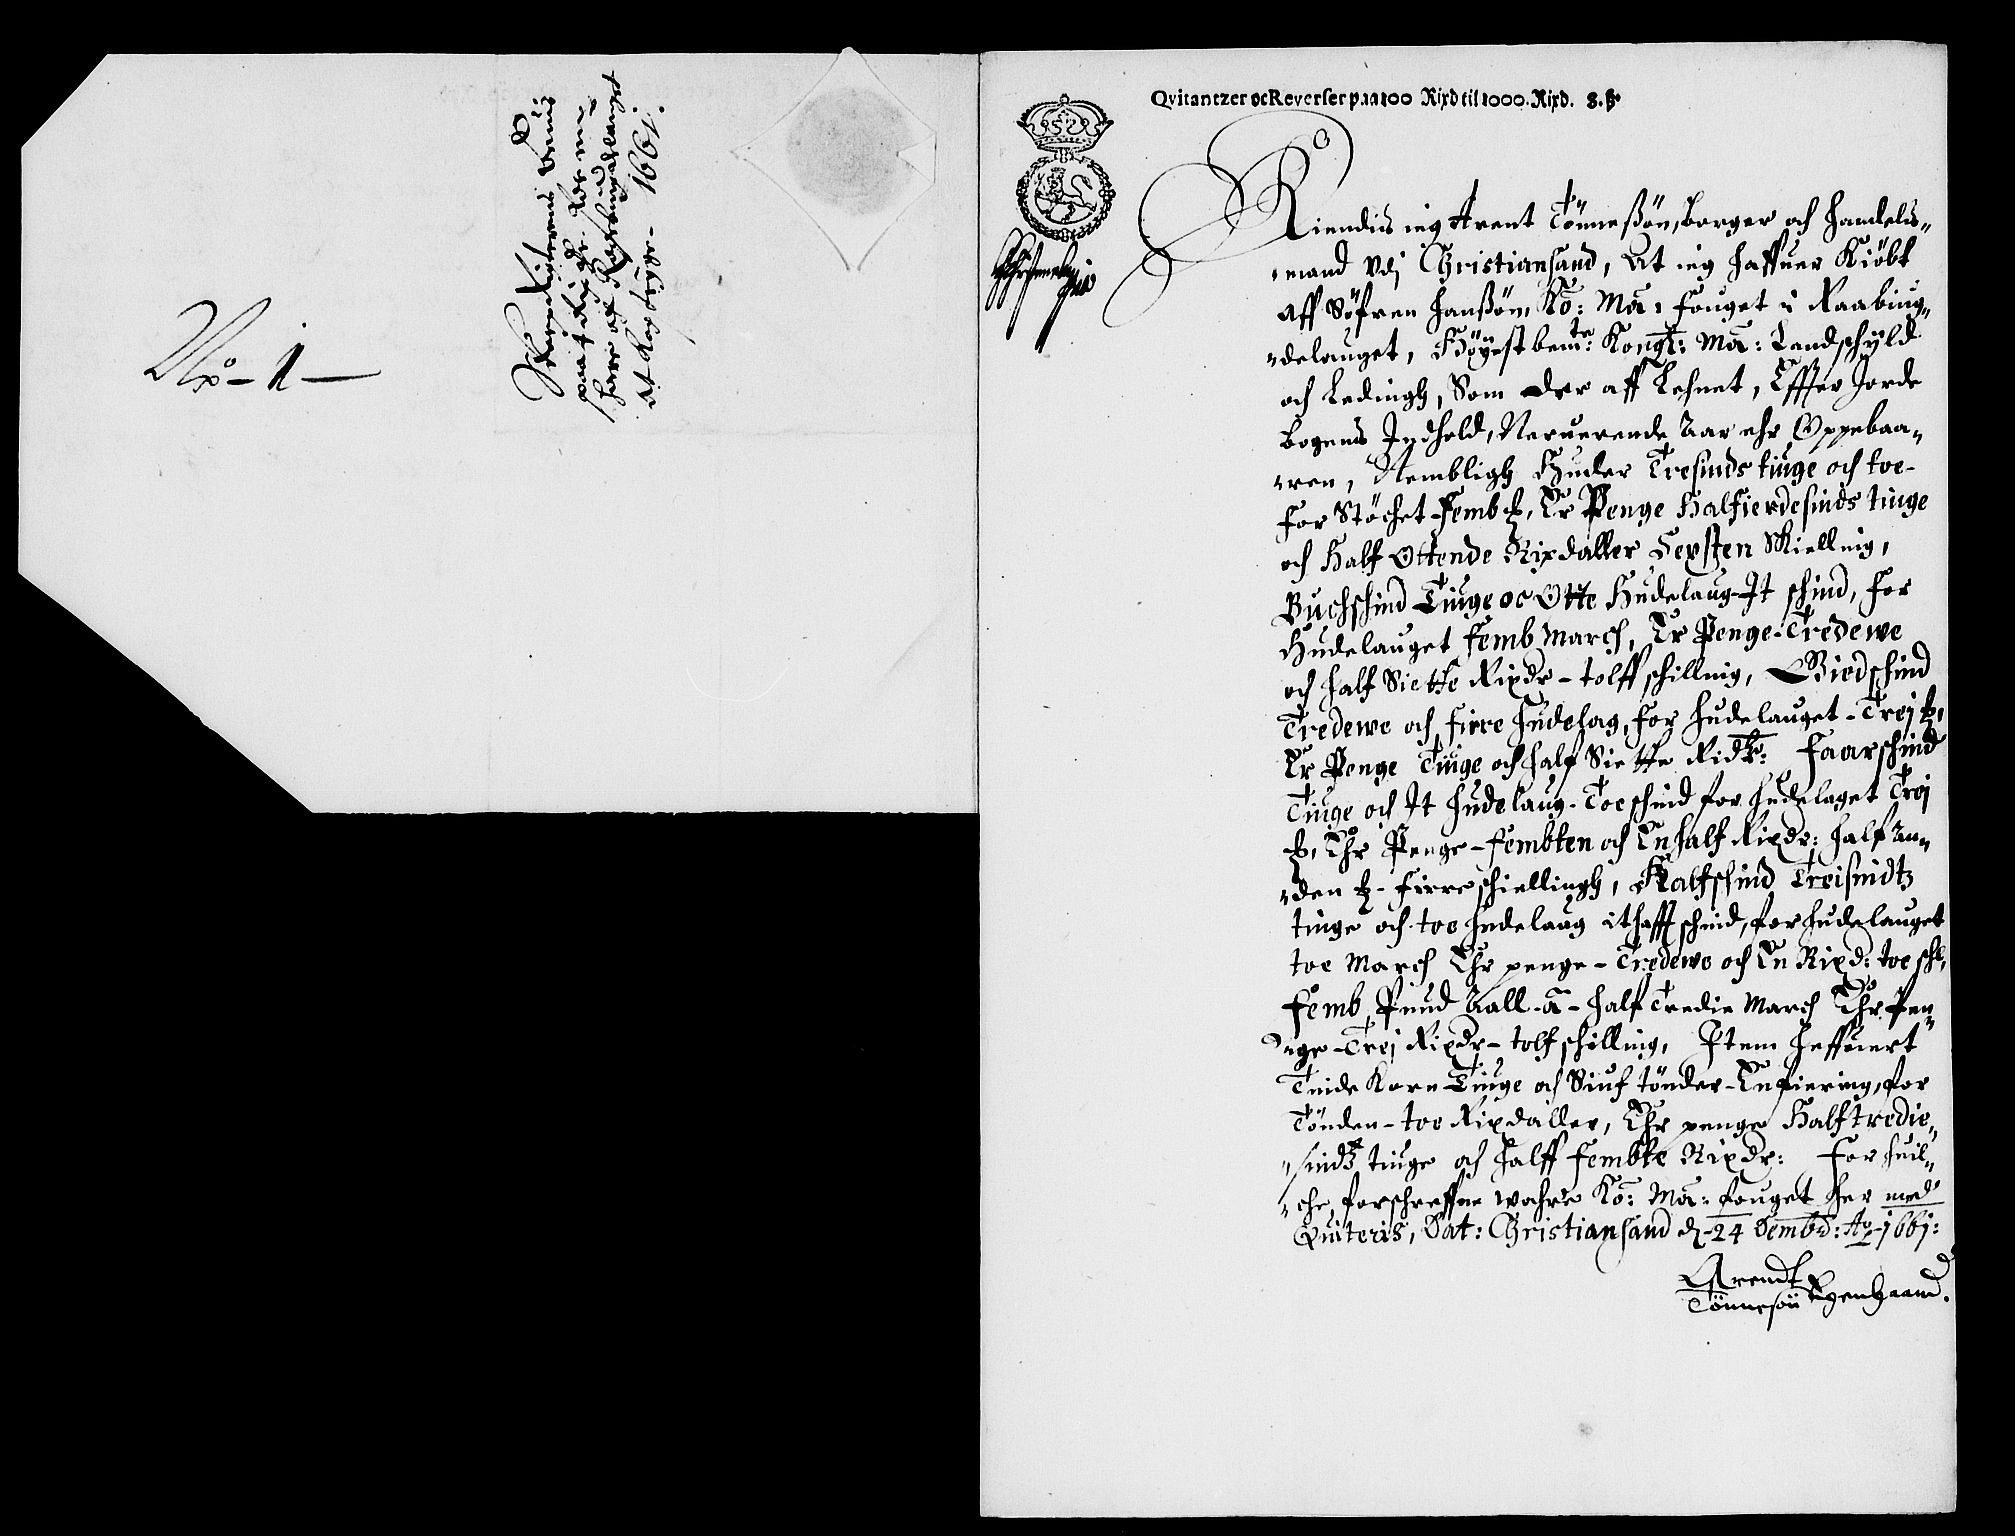 No 1
1661.
Qvitantzer oc Reverser paa 100 Rixd til 1000. Rixd. 8. ß.
Kiendis ieg Arent Tönneßön, Borger och Handels„
„mand Vdj Christiansand, At ieg haffuer Kiöbt
aff Söfren Hanßön, Ko: Ma: fouget i Raabiug„
„delauget, Höyestbemte: Kongl: Ma: Landschyld
och Ledingh, Som der aff Lehnet, Effter Jorde
bogens Indhold, Neruerende Aar ehr Oppebaa„
„ren, Nembligh Huder Tresinds tiuge och toe
for Stöchet Femb ȸ, Er Penge Halfierdesinds tiuge
och Half Ottende Rixdaller Sexsten Skielling,
Buchschind Tiuge oc Otte Hudelaug It schind, for
Hudelauget femb March, Er Penge Tredewe
och half Siette Rixdr tolff schilling, Giedschind
Tredewe och firre Hudelag, for hudelauget Trej ȸ,
Er Penge Tiuge och half Siette Rixdr: Faarschind
Tiuge och It Hudelaug Toe schind for hudelaget Trej
ȸ, Ehr Penge fembten och En half Rixdr: half an„
„den ȸ firre schiellingh, Kalfschind Treisindtz
tiuge och toe hudelaug it hafft schind, for hudelauget
toe March Ehr penge Tredewe och En Rixd: toe schl,
Femb Pund Aall a half Tredie March Ehr Pen„
„ge Trej Rixdr tolf schilling, Item haffuert
Tiide Korn Tiuge och Siuf tönder En fiering, for
Tönden toe Rixdaller, Ehr penge Halftredie„
„sindtz tiuge och halff fembte Rixdr: For huil„
„che forschreffne wahre Ko: Ma: fouget her med
Quiteris, Dat: Christiansand d. 24 Decembr: Ao 1661:
Arendt
Tönnesön Egenhaand.